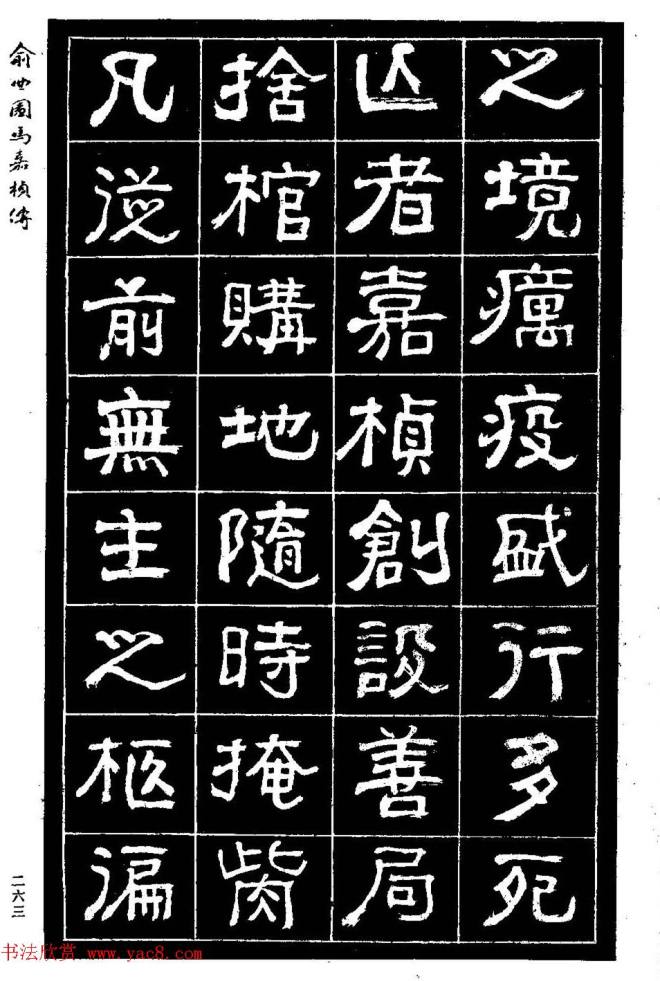 之境癘疫盛行多死
亾者嘉楨創設善局
捨棺購地隨時掩胔
凡從前無主之柩徧
俞曲園馬嘉楨傳
二六三
书法欣赏 www.yac8.com